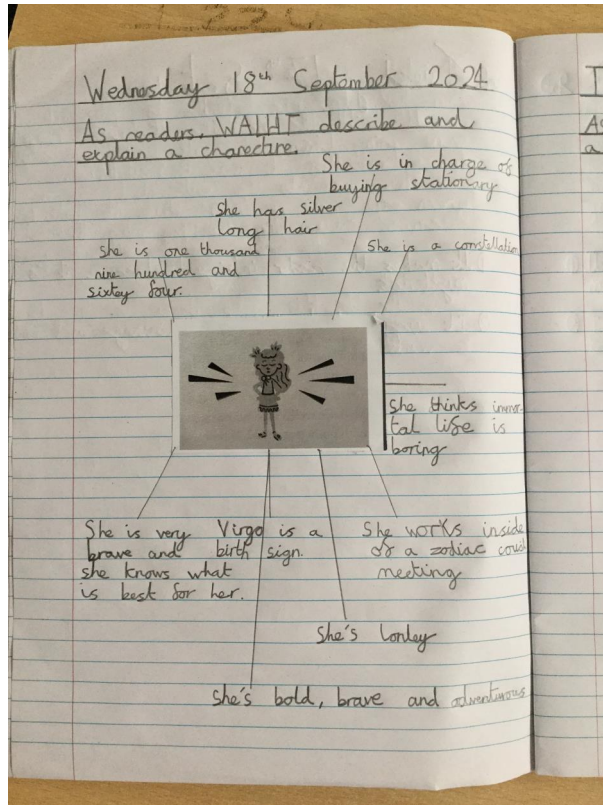 Wednesday 18th September 2024
As readers, WALHT describe and
explain a charectire.
She is in charge of
buying stationry
She has silver
long hair
She is one thousand
nine hundred and
sixtey four.
She is a constellation
She thinks immor-
tal life is
boring
She is very
brave and
she knows what
is best for her.
Virgo is a
birth sign.
She works inside
of a zodiac
meeting
She's lonley
She's bold, brave and adventurous
As
a